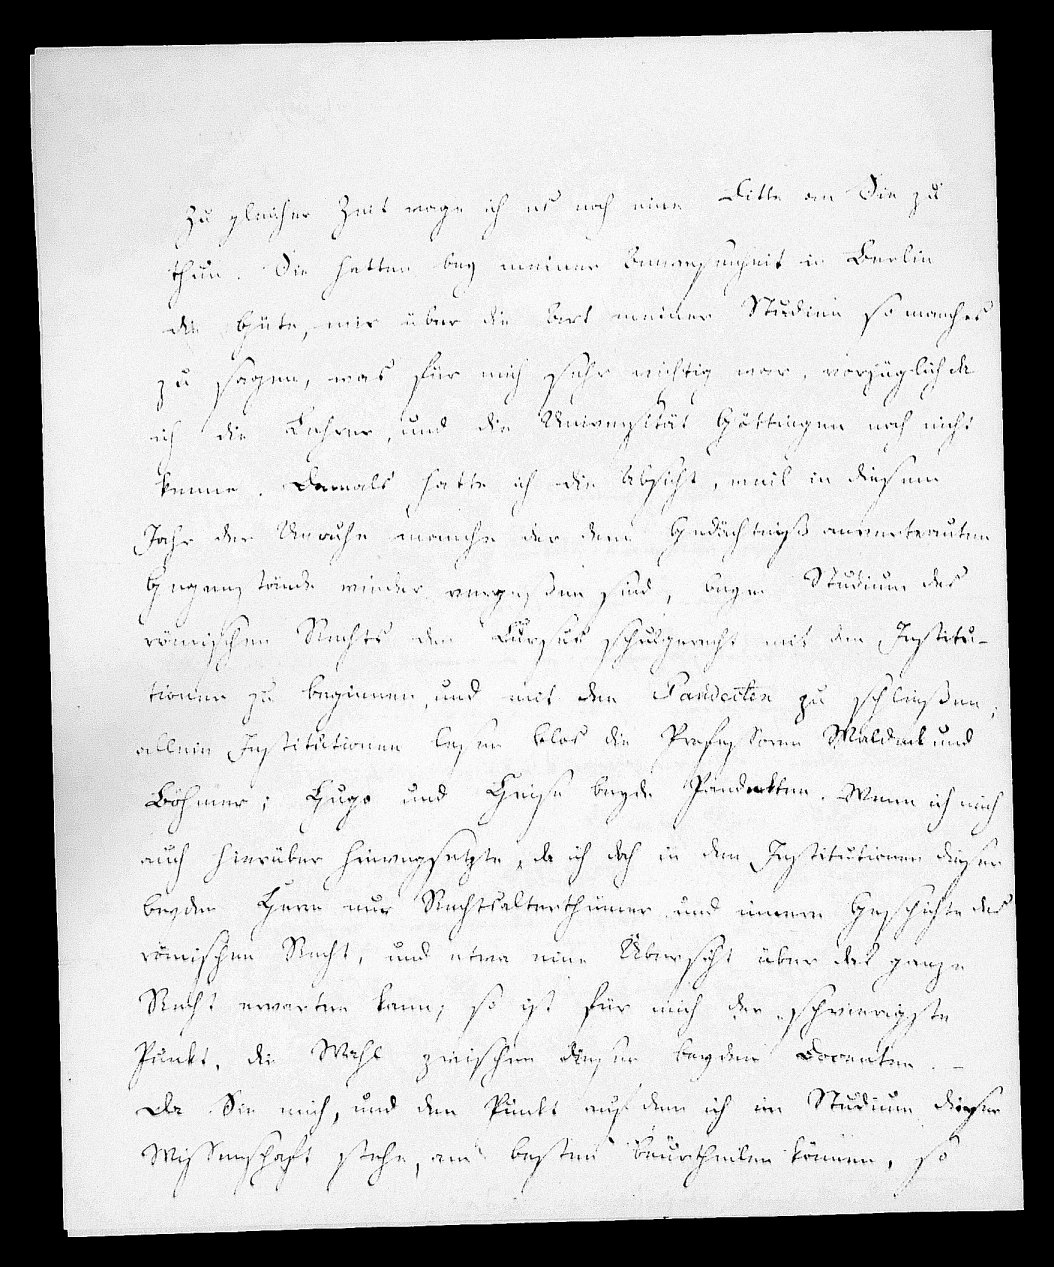 Zu gleicher Zeit wage ich es noch eine Bitte an Sie zu
thun. Sie hatten bey meiner Anwesenheit in Berlin
die Güte, mir über die Art meiner Studien so manches
zu sagen, was für mich sehr wichtig war, vorzüglich da
ich die Lehrer, und die Universität Göttingen noch nicht
kenne. Damals hatte ich die Absicht, weil in diesem
Jahr der Unruhe manche der dem Gedächtniß anvertrauten
Gegenstände wieder vergeßen sind, beym Studium des
römischen Rechts den Cursus schulgerecht mit den Institu-
tionen zu beginnen, und mit den Pandecten zu schließen;
allein Institutionen lesen blos die Professoren Waldeck und
Böhmer; Hugo und Heise beyde Pandekten. Wenn ich mich
auch hierüber hinwegsetzte, da ich doch in den Institutionen dieser
beyden Herrn nur Rechtsalterthümer und innere Geschichte des
römischen Recht, und etwa eine Übersicht über das ganze
Recht erwarten kann; so ist für mich der schwierigste
Punkt, die Wahl zwischen diesen beyden Docenten. –
Da Sie mich, und den Punkt auf dem ich im Studium dieser
Wissenschaft stehe, am besten beurtheilen können, so